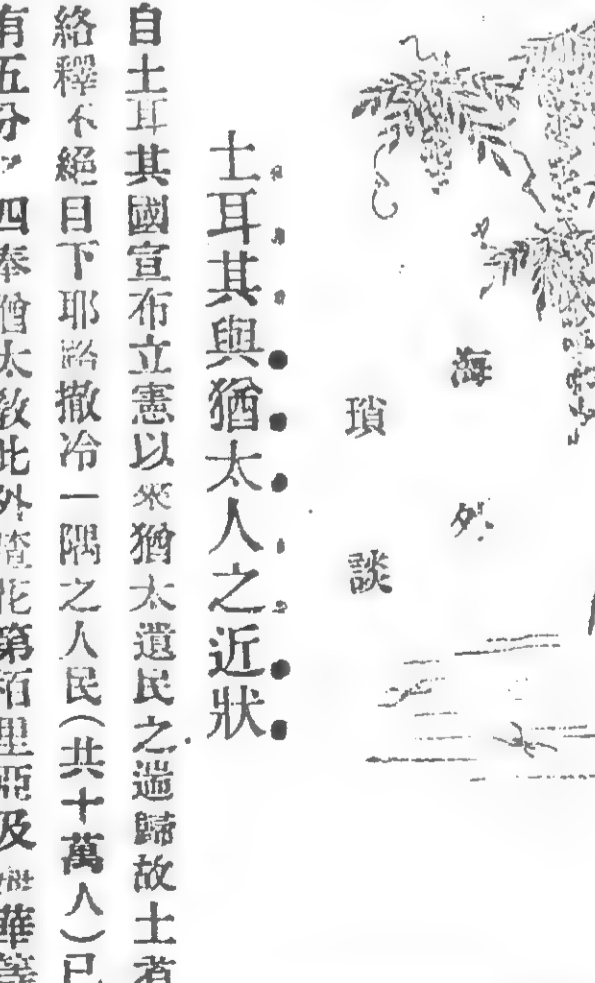 海外
瑣談
土耳其與猶太人之近狀
自土耳其國宣布立憲以來猶太遺民之遄歸故土者
絡繹不絕目下耶路撒冷一隅之人民(共十萬人)已
有五分之四奉猶太敎此外 花第栢里亞及 華等